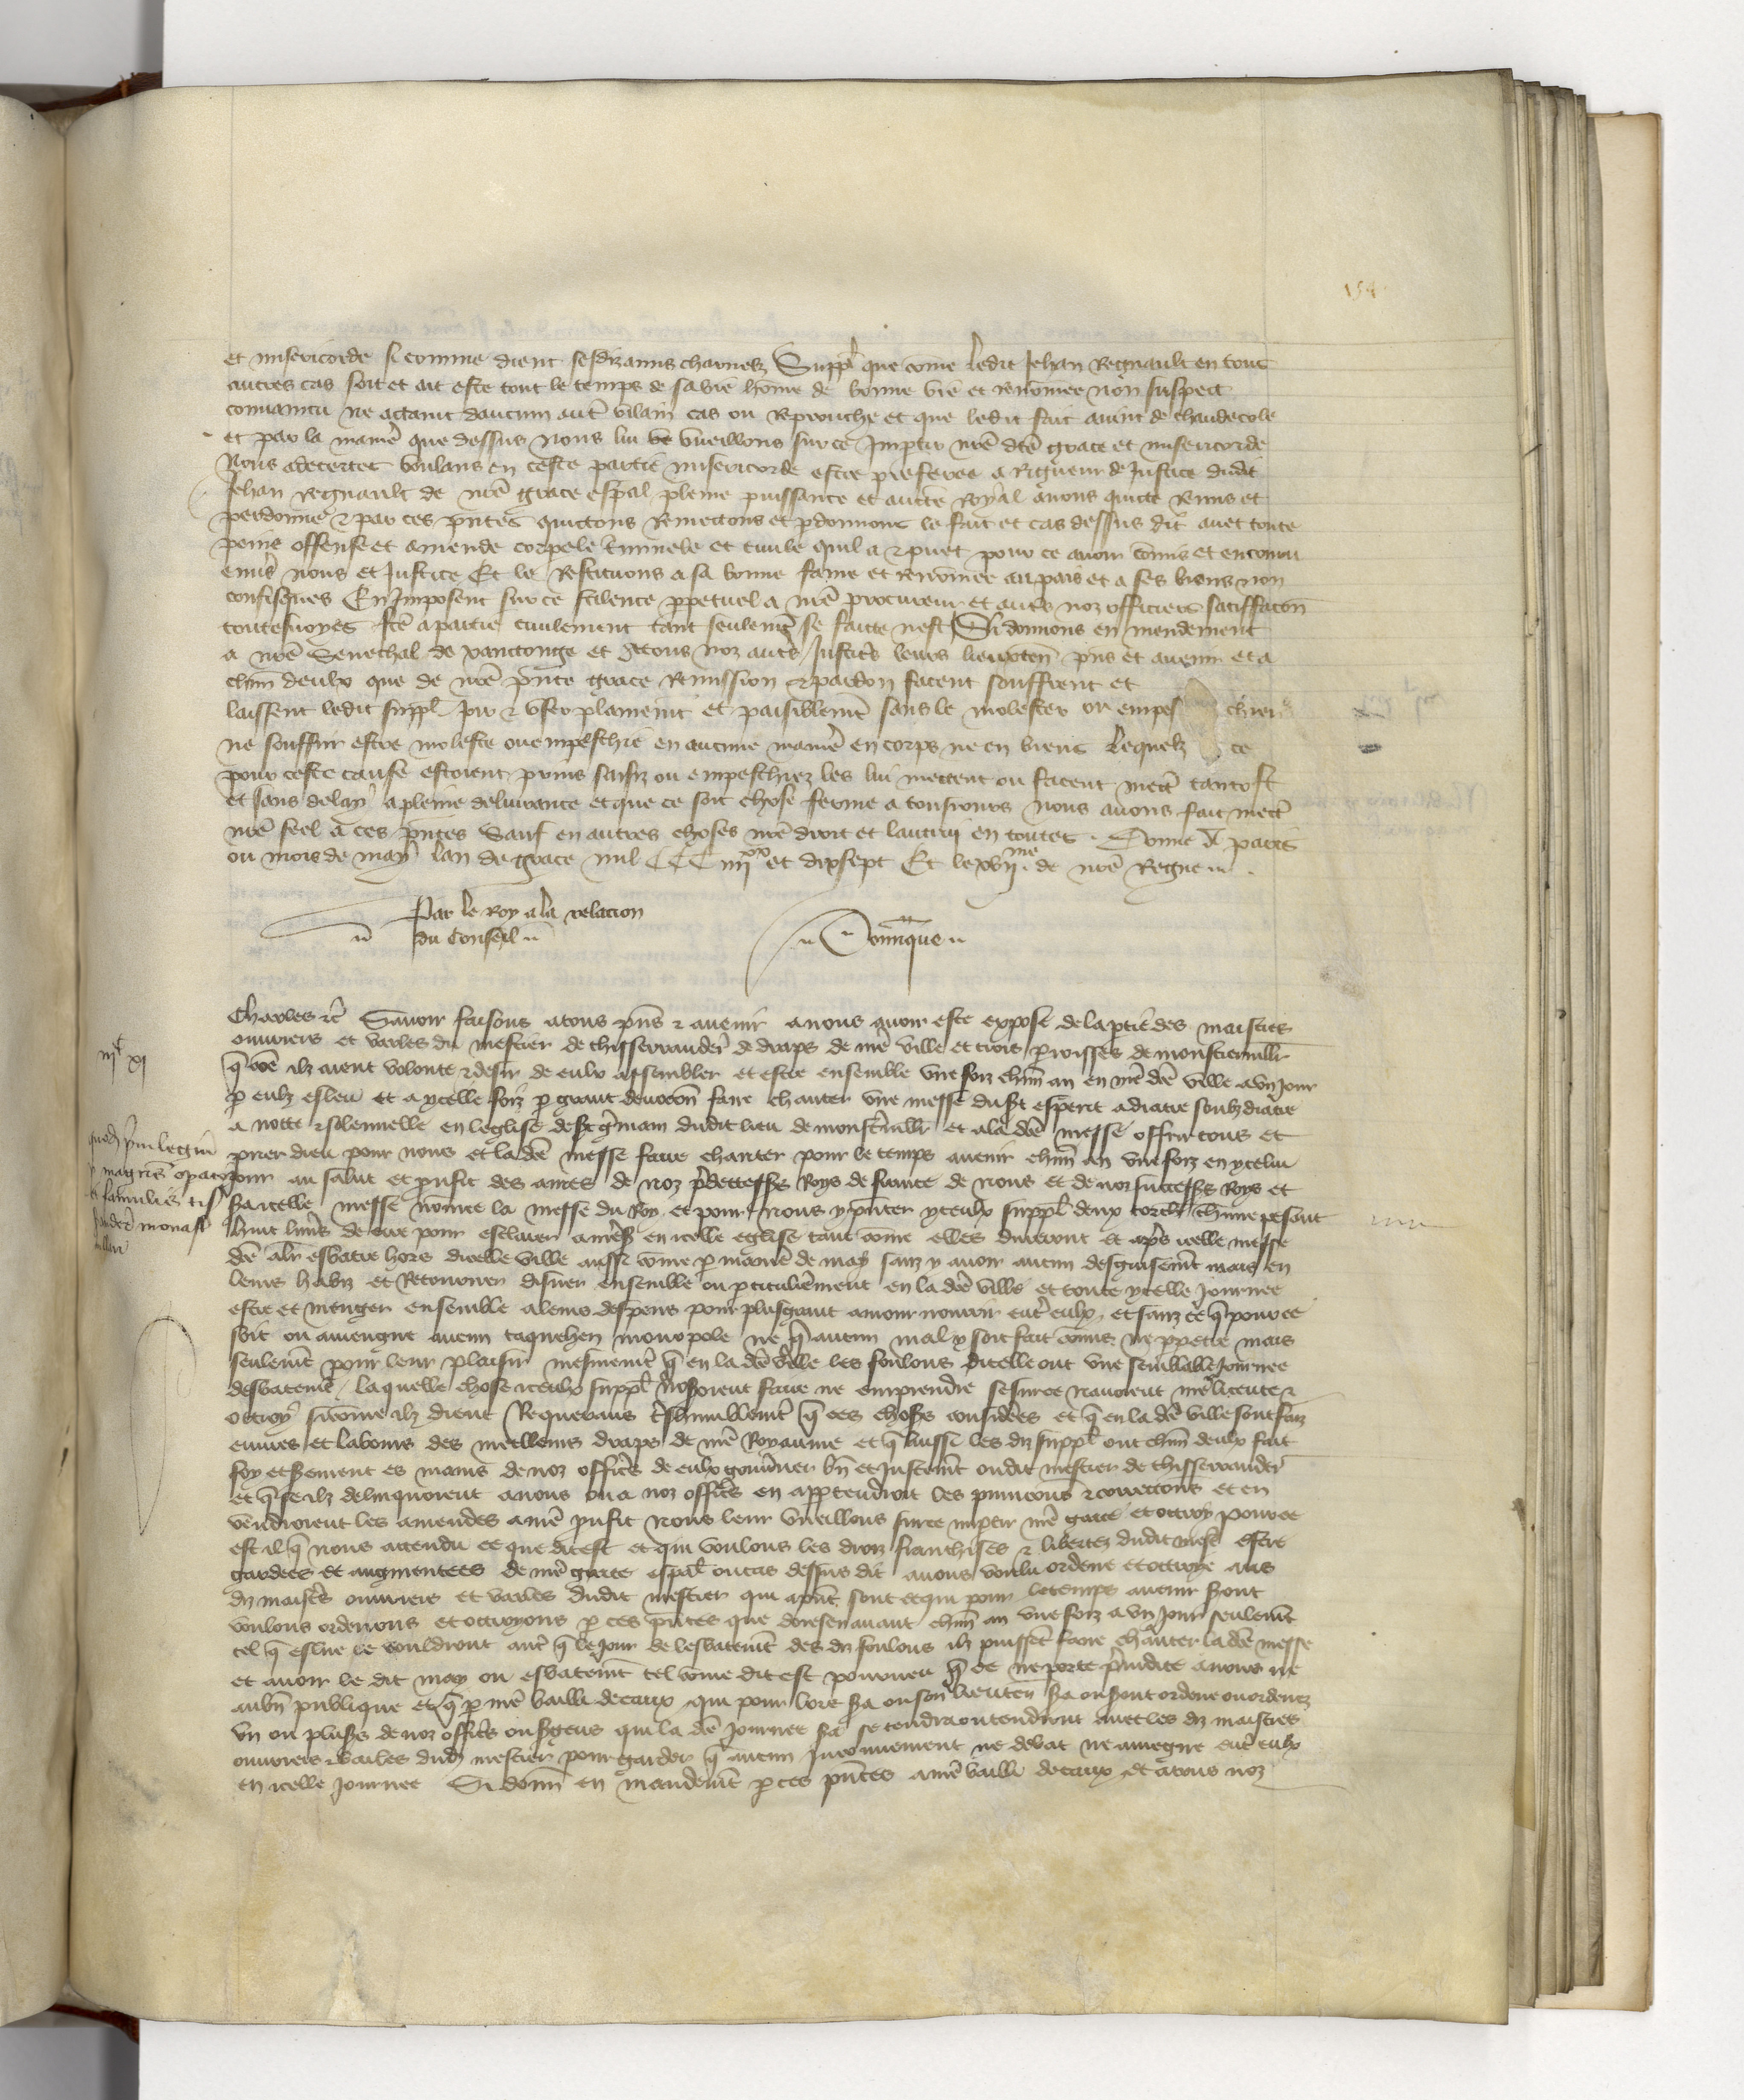 154
et misericorde si comme dient sesdiz amis charnelz Suppl que come ledit Jehan Regnault en touz
autres cas soit et ait este tout le temps de sa vie home de bonne vie et renomee non suspect
convaincu ne actaint daucun autre vilain cas ou Reprouche et que ledit fait avint de chaude cole
et par la maniere que dessus nous lui vueillons sur ce Impartir nre dte grace et misericorde
Nous adecertes voulans en ceste partie misericorde estre preferee a Rigueur de Justice audit
Jehan Regnault de nre grace espal pleine puissance et auctte Royal avons quicte Remis et
perdonne & par ces pntes quictons Remectons et pdonnons le fait et cas dessus dit avec toute
peine offense et amende corpele criminele et civile quil a & puet pour ce avoir comis et encouru
envers nous et Justice Et le Restituons a sa bonne fame et renomee au pais et a ses biens non
confisques En Imposent sur ce scilence ppetuel a nre procureur et autres noz officiers satisfacon
toutesvoyes fte a partie civilement tant seulement se faicte nest Si donnons en mendement
a nre Seneschal de xanctonge et a tous noz autres Justiciers leurs lieuxten pns et avenir et a
chun deulx que de nre pnte grace Remission & pardon facent souffrent et
laissent ledit suppl joir & user plainemt et paisiblemt sans le molester ou empes chier
ne souffrir estre moleste ou empeschie en aucune maniere en corps ne en biens Lequelz ce
pour ceste cause estoient prins saisiz ou empeschiez les lui mectent ou facent mectre tantost
et sans delay a pleine delivrance et que ce soit chose ferme a tousjours nous avons fait mectre
nre seel a ces pntes Sauf en autres choses nre droit et lautrui en toutes. Donne A paris
ou mois de may lan de grace mil CCC iiijxx et dixsept Et le xvijme de nre Regne
Par le Roy a la relacion
du Conseil
Charles &c Savoir faisons a tous pns & avenir a nous avoir este expose de la ptie des maistres
ouvriers et varles du mestier de thisserranderie de draps de nre ville et trois paroisses de monstiervillr
q come ilz aient volonte & desir de eulx assembler et estre ensemble une foiz chun an en nre dte ville a un Jour
p eulz esleu et a ycelle foiz p grant devocon faire chanter une messe du st esperit a diacre soubzdiacre
a notte & solennelle en leglise de st germain dudit lieu de monstiervillr et a la dte messe offrir tous et
prier dieu pour nous et la dte messe faire chanter pour le temps avenir chun an une foiz en ycelui
iijc xj
jour au salut et prufit des ames de noz predecesseurs Roys de france de nous et de noz successeurs Roys et
sera icelle messe nomee la messe du Roy et pour nous y pnter yceulx suppl deux torches chune pesant
huit livres de cire pour esclairer a messe en icelle eglise tant come elles dureront et apres icelle messe
dte aler esbatre hors dicelle ville aussi come p maniere de may sanz y avoir aucun desguisemt mais en
leurs habiz et Retourner disner ensemble ou pticulierement en la dte ville et toute ycelle journee
estre et menger ensemble a leurs despens pour plus grant amour nourrir entre eulx et sanz ce q pour ce
soit ou aviengne aucun taquehen monopole ne q aucun mal y soit fait comis ne ppetre mais
seulemt pour leur plaisir mesmemt q en la dte ville les foulons dicelle ont une semblable journee
desbatemt laquelle chose iceulx suppl noseroient faire ne emprendre se sur ce navoient nre licence &
ottroy si come ilz dient Requerans treshumblemt q ces choses considerees et q en la dte ville sont faiz
euvres et labores des meilleurs draps de nre Royaume et q aussi les dz suppl ont chun deulx fait
foy et serement es mains de noz officiers de eulx gouverner bn et justemt oudit mestier de thisseranderie
et q se ilz delinquoient a nous ou a noz officiers en appartendroit les punicons & correccons et en
vendroient les amendes a nre prufit Nous leur vueillons sur ce impartir nre grace et ottroy Pour ce
est il q nous attendu ce que dit est et qui voulons les droiz franchises & libertez dudit mestier estre
gardees et augmentees de nre grace espal ou cas dessus dit avons voulu ordene et ottroye aus
dz maistres ouvriers et varles dudit mestier qui a pnt sont et qui pour le temps avenir seront
voulons ordenons et ottroyons p ces pntes que doresenavant chun an une foiz a un jour seulemt
tel q eslire le vouldront autre q le jour de lesbatemt des dz foulons ilz puissent faire chanter la dte messe
et avoir le dit may ou esbatemt tel come dit est pourveu q ce ne porte prejudice a nous ne
au bn publique et q p nre bailli de caux qui pour lors sera ou son lieuten sera ou seront ordene ou ordenez
un ou pluss de noz officiers ou sergens qui la dte journee sera se tendra ou tendront avec les dz maistres
ouvriers & varles dud mestier pour garder q aucun Inconvenient ne debat ne aviegne entre eulx
en icelle journee Si donn en mandemt p ces pntes a nre bailli de caux et a tous noz